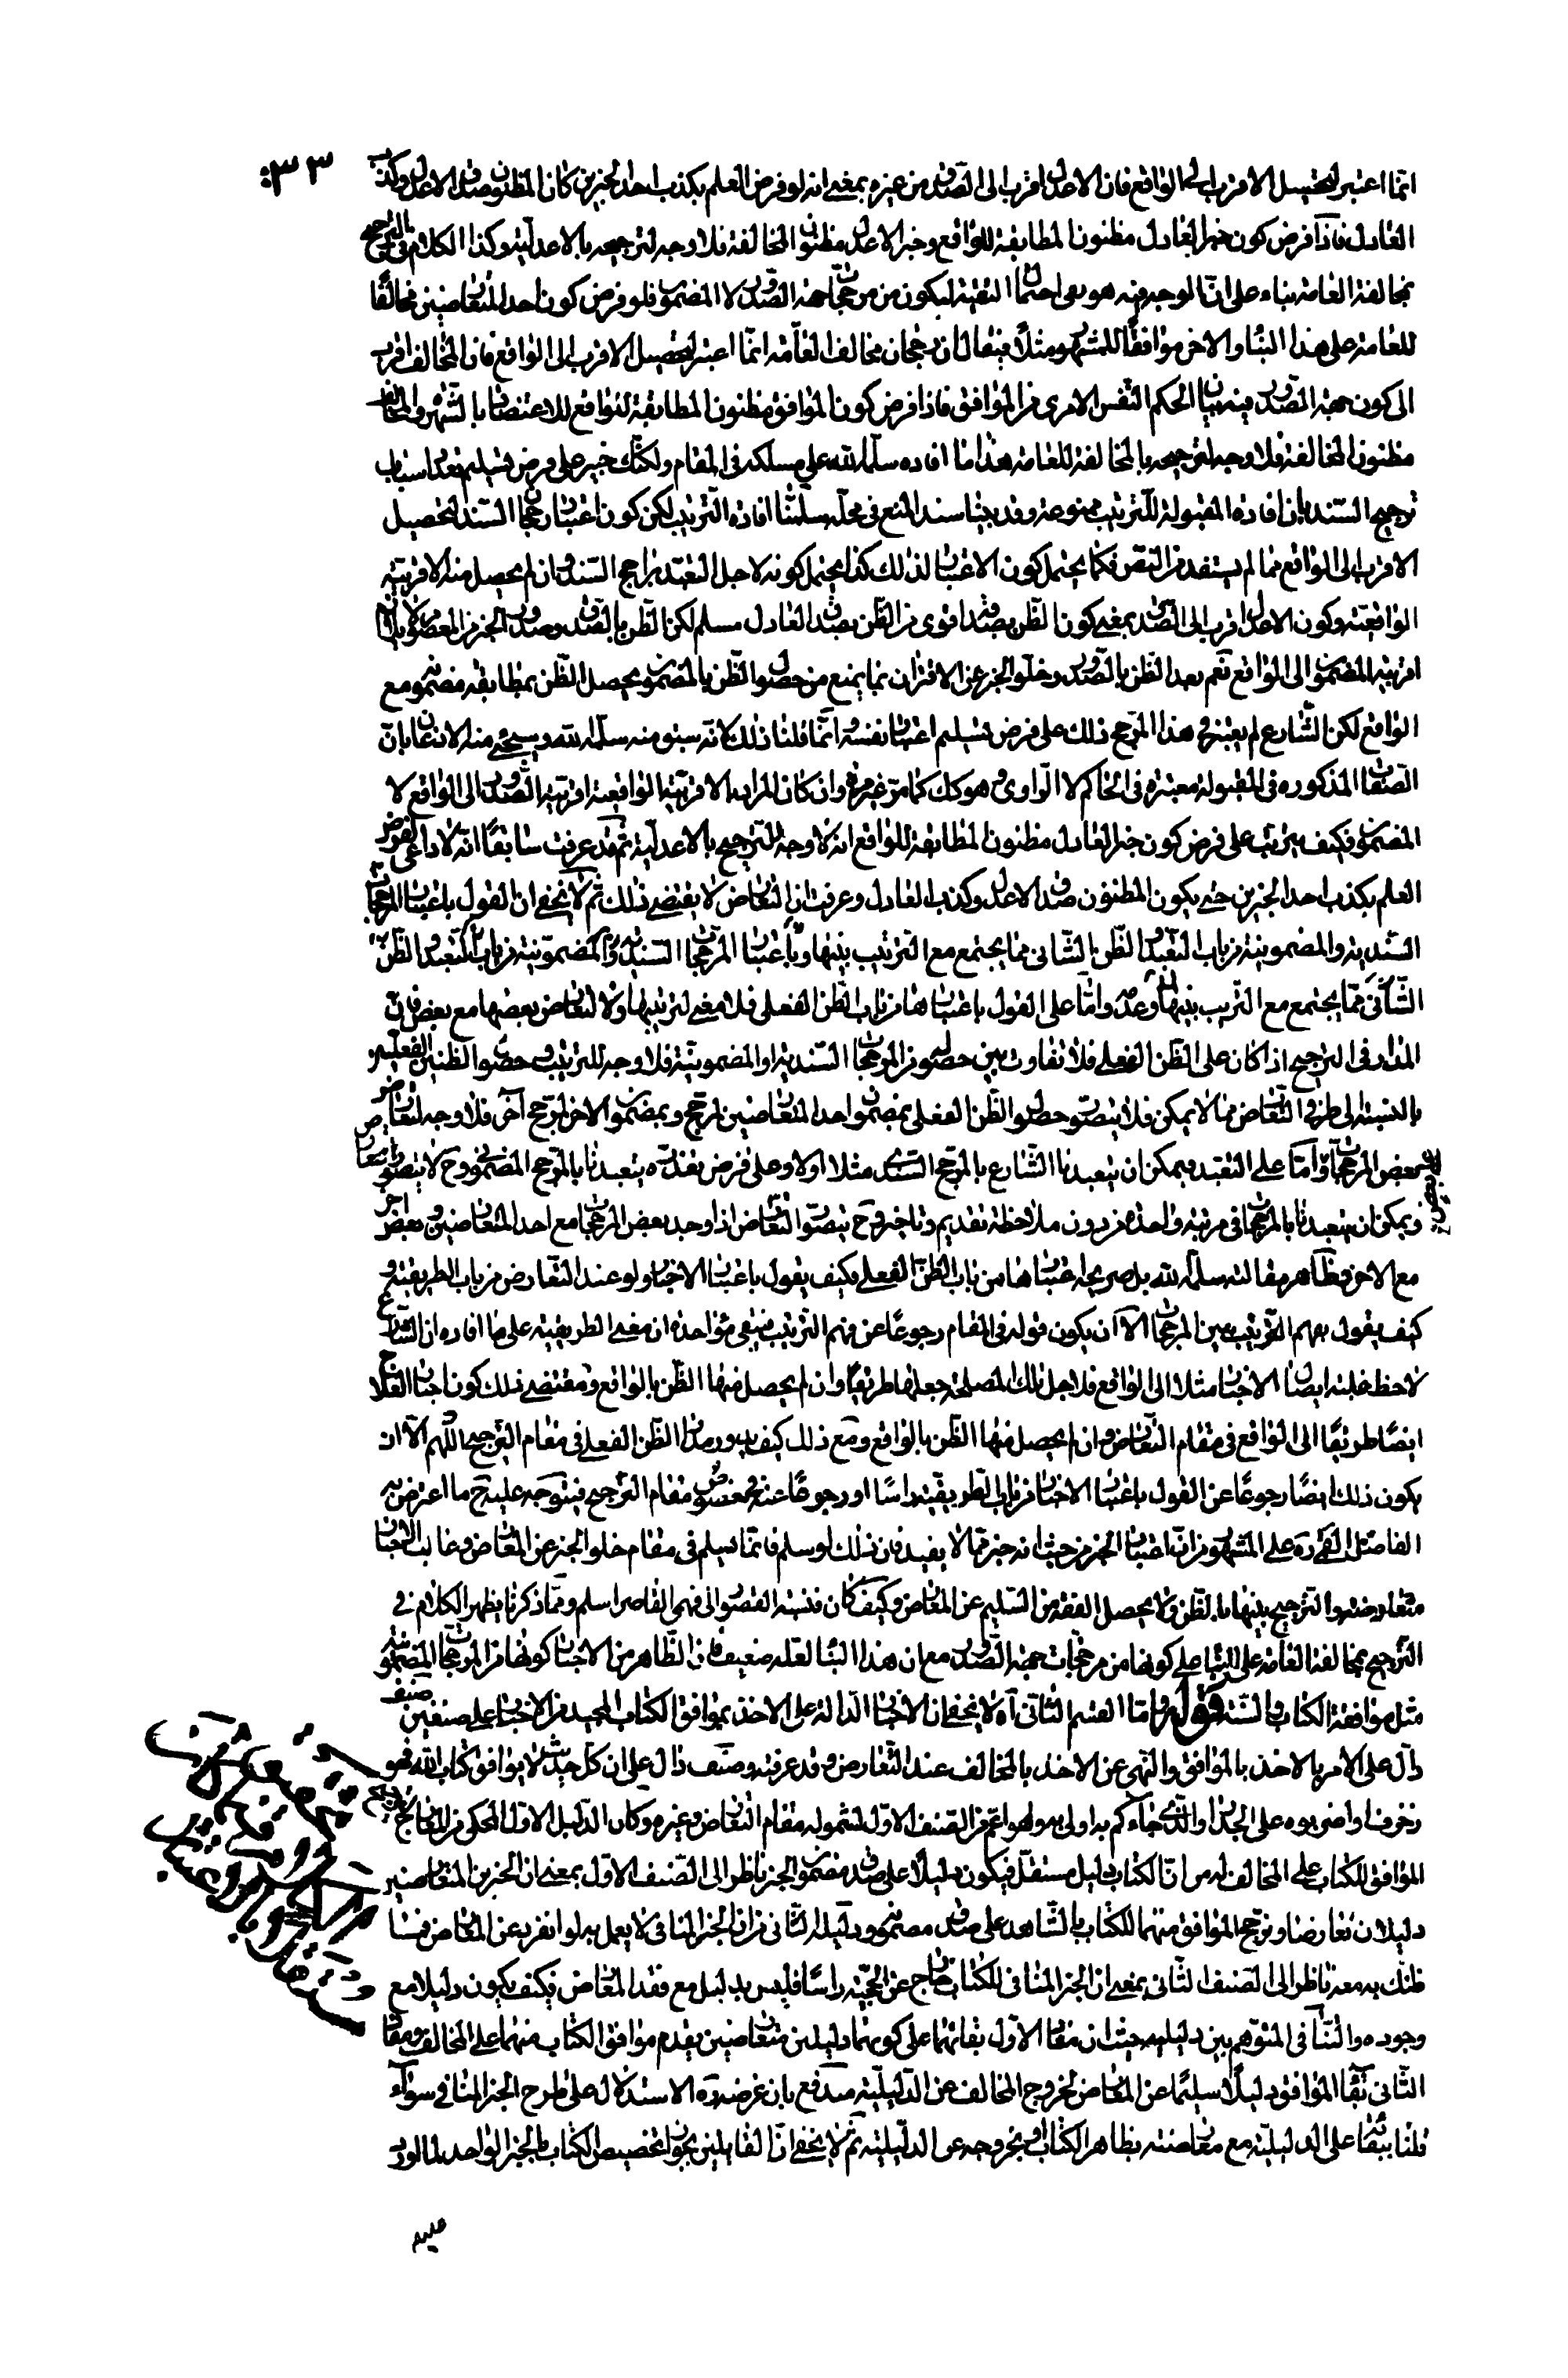 ٣٣
انّما اعتبر لتحصيل الاقرب الى الواقع فان الاعدل اقرب الى الصّدق من غيره بمعنى انه لو فرض العلم بكذب احد الخبرين كان المظنون صدق الاعدل وكذب
العادل فاذا فرض كون خبر العادل مظنون المطابقة للواقع وخبر الاعدل مظنون المخالفة فلا وجه لترجيحه بالاعدليّة وكذا الكلام فى الترجيح
بمخالفة العامّة بناء على انّ الوجه فيه هو نفى احتمال التقيّة ليكون من مرجّحات جهة الصّدور لا المضمون فلو فرض كون احد المتعارضين مخالفًا
للعامّة على هذا البناء والاخر موافقًا للمشهور مثلًا فيقال ان رجحان مخالف العامّة انّما اعتبر لتحصيل الاقرب الى الواقع فان المخالف اقرب
الى كون جهة الصّدور فيه بيان الحكم النّفس الامرى من الموافق فاذا فرض كون الموافق مظنون المطابقة للواقع للاعتضاد بالشّهرة والمخالف
مظنون المخالفة فلا وجه لترجيحه بالمخالفة للعامّة هذا ما افاده سلّمه الله على مسلكه فى المقام ولكنّك خبير على فرض تسليم تعدد اسباب
ترجيح السّند بان افادة المقبولة للترتيب ممنوعة وقد بيّنا سند المنع فى محلّه سلّمنا افادة الترتيب لكن كون اعتبار رجحان السّند لتحصيل
الاقرب الى الواقع ممّا لم يستفد من النّص فكما يحتمل كون الاعتبار لذلك كذا يحتمل كونه لاجل التعبّد براجح السّند وان لم يحصل منه الاقربيّة
الواقعيّة وكون الاعدل اقرب الى الصّدق بمعنى كون الظّن بصدقه اقوى من الظّن بصدق العادل مسلم لكن الظّن بالصّدق وصدور الخبر من المعصوم لا يلازم
اقربيّة المضمون الى الواقع نعم بعد الظّن بالصّدور وخلوّ الخبر عن الاقتران بما يمنع من حصول الظّن بالمضمون يحصل الظّن بمطابقة مضمونه مع
الواقع لكن الشّارع لم يعتبر فى هذا المرجّح ذلك على فرض تسليم اعتبار نفسه وانّما قلنا ذلك لانّه سبق منه سلّمه الله وسيجئ منه الاذعان بانّ
الصّفات المذكوره فى المقبولة معتبرة فى الحاكم لا الرّاوى وهو كك كما مرّ غير مرّة وان كان المراد الاقربيّة الواقعيّة اقربيّة الصّدور الى الواقع لا
المضمون فكيف يترتب على فرض كون خبر العادل مظنون المطابقة للواقع انه لا وجه للترجيح بالاعدليّة ثمّ قد عرفت سابقًا انّه لا داعى لفرض
العلم بكذب احد الخبرين حتّى يكون المظنون صدق الاعدل وكذب العادل وعرفت ان التّعارض لا يقتضى ذلك ثمّ لا يخفى ان القول باعتبار المرجّحات
السّنديّة والمضمونيّة من باب التعبّد والظّن الشّانى ممّا يجتمع مع الترتيب بينها وباعتبار المرجّحات السّنديّة والمضمونيّة من باب التّعبّد والظّن
الشّانّى ممّا يجتمع مع الترتيب بينها وعدمه وامّا على القول باعتبارها من باب الظّن الفعلى فلا معنى لترتيبها ولا لتعارض بعضها مع بعض فانّ
المدار فى الترجيح اذا كان على الظّن الفعلى فلا تفاوت بين حصوله من المرجّحات السّنديّة او المضمونيّة فلا وجه للترتيب وحصول الظنين الفعليين
بالنسبة الى طرفى التّعارض ممّا لا يمكن فلا يتصوّر حصول الظّن الفعلى بمضمون احد المتعارضين لمرجّح وبمضمون الاخر لمرجّح آخر فلا وجه لتعارض
بعض المرجّحات وامّا على التعبّد فيمكن ان يتعبدنا الشّارع بالمرجّح السّندى مثلا اولا وعلى فرض فقده يتعبدنا بالمرجّح المضمونى وح لا يتصوّر تعارض
ويمكن ان يتعبدنا بالمرجّحات فى مرتبة واحدة من دون ملاحظة تقديم وتاخير وح يتصوّر التّعارض اذا وجد بعض المرجّحات مع احد المتعارضين وبعض اخر
مع الاخر فظاهر مقالته سلّمه الله بل صريحه اعتبارها من باب الظّن الفعلى فكيف يقول باعتبار الاخبار ولو عند التّعارض من باب الطريقيّة و
كيف يقول بفهم الترتيب بين المرجّحات الا ان يكون قوله فى المقام رجوعًا عن فهم الترتيب فيبقى مؤاخذة ان معنى الطريقيّة على ما افاده ان الشّارع
لاحظ غلبة ايصال الاخبار مثلا الى الواقع فلاجل تلك المصلحة جعلها طريقًا وان لم يحصل منها الظّن بالواقع ومقتضى ذلك كون اخبار العلاج
ايضًا طريقًا الى الواقع فى مقام التّعارض وان لم يحصل منها الظّن بالواقع ومع ذلك كيف يدور مدار الظّن الفعلى فى مقام الترجيح اللّهم الّا ان
يكون ذلك ايضًا رجوعًا عن القول باعتبار الاخبار من باب الطّريقيّة راسًا او رجوعًا عنه فى خصوص مقام الترجيح فيتوجه عليه ح ما اعترض به
الفاضل القمّى ره على المشهور من انّ اعتبار الخبر من حيث انه خبر ممّا لا يفيد فان ذلك لو سلم فانّما يسلم فى مقام خلو الخبر عن المعارض وغالب الاخبار
متعارضة والترجيح بينها بالظّن ولا يحصل الفقه من السّليم عن المعارض وكيف كان فنسبة القصور الى فهمى القاصر اسلم وممّا ذكرنا يظهر الكلام فى
الترجيح بمخالفة العامّة على البناء على كونها من مرجّحات جهة الصّدور مع ان هذا البناء لعلّه ضعيف فان الظّاهر من الاخبار كونها من المرجّحات المضمونيّة
مثل موافقة الكتاب والسّنة قوله وامّا القسم الثّانى آه لا يخفى ان الاخبار الدّالة على الاخذ بموافق الكتاب المجيد من الاخبار على صنفين صنف
دالّ على الامر بالاخذ بالموافق والنّهى عن الاخذ بالمخالف عند التّعارض وقد عرفته وصنف دالّ على ان كلّ حديث لا يوافق كتاب الله فهو
زخرف او اضربوه على الجدار او الّذى جاءكم به اولى به وهو اعمّ من الصّنف الاوّل لشموله مقام التّعارض وغيره وكان الدّليل الاوّل المحكى من المعارج لترجيح
الموافق للكتاب على المخالف له من انّ الكتاب دليل مستقلّ فيكون دليلًا على صدق مضمون الخبر ناظر الى الصّنف الاوّل بمعنى ان الخبرين المتعارضين
دليلان تعارضا ونرجّح الموافق منهما للكتاب بالشّاهد على صدق مضمونه ودليله الثّانى من ان الخبر المنافى لا يعمل به لو انفرد عن المعارض فما
ظنّك به معه ناظر الى الصّنف الثّانى بمعنى ان الخبر المنافى للكتاب خارج عن الحجيّة راسًا فليس بدليل مع فقد المعارض فكيف يكون دليلا مع
وجوده والتّنافى المتوّهم بين دليليه حيث ان مفاد الاوّل بقائهما على كونهما دليلين متعارضين يقدم موافق الكتاب منهما على المخالف ومفاد
الثّانى بقاء الموافق دليلًا سليمًا عن المعارض لخروج المخالف عن الدّليليّة مندفع بان غرضه ره الاستدلال على طرح الخبر المنافى سوآء
قلنا ببقائه على الدليليّة مع معارضته بظاهر الكتاب او بخروجه عن الدليليّة ثمّ لا يخفى انّ القايلين بجواز تخصيص الكتاب بالخبر الواحد لما اورد
عليهم